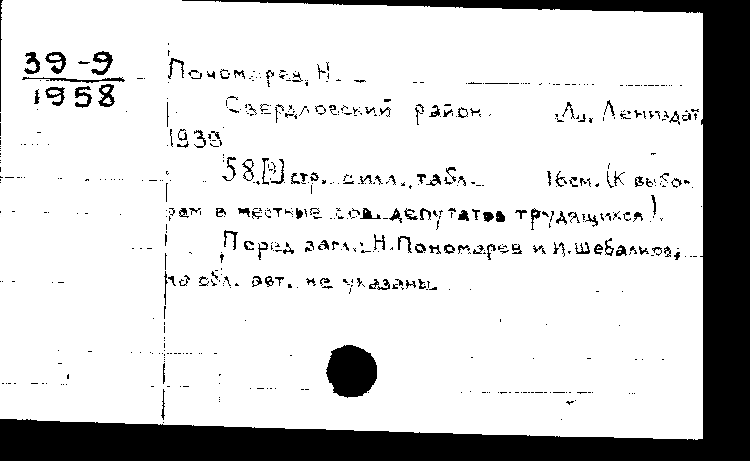 39-9
1958
Пономарев, Н.
Свердловский район. Л., Лениздат,
1939
58 [2] стр. с илл., табл. 16см. (К выбо-
рам в местные сов. депутатов трудящихся).
Перед загл.: Н. Пономарев и И. Шебалков;
на обл. авт. не указаны